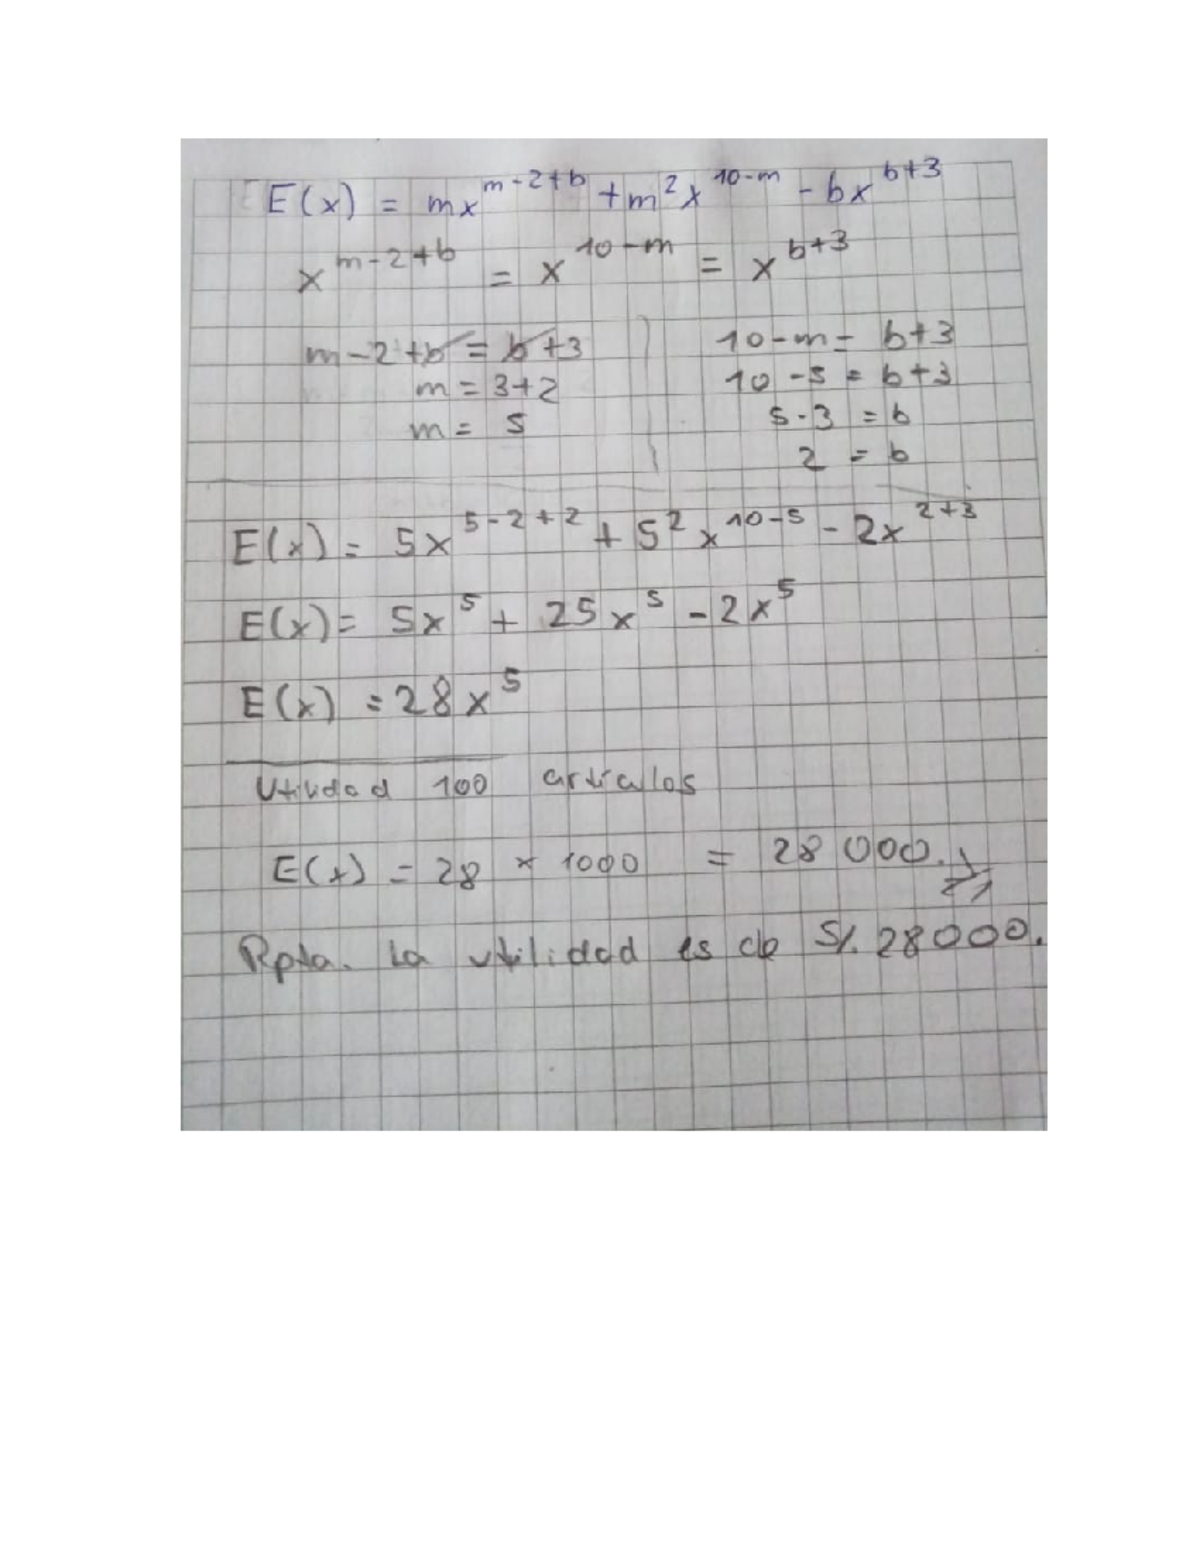 E(x) = mx^(m-2+b) + m²x^(10-m) - bx^(b+3)
x^(m-2+b) = x^(10-m) = x^(b+3)
m-2+b = b+3
m = 3+2
m = 5
10-m = b+3
10-5 = b+3
5-3 = b
2 = b
E(x) = 5x^(5-2+2) + 5²x^(10-5) - 2x^(2+3)
E(x) = 5x⁵ + 25x⁵ - 2x⁵
E(x) = 28x⁵
Utilidad 100 articulos
E(x) = 28 x 1000 = 28 000.
Rpta. La utilidad es de S/. 28000.